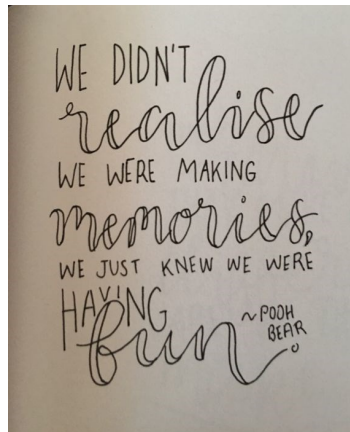 WE DIDN'T
realise
WE WERE MAKING
memories,
WE JUST KNEW WE WERE
HAVING
fun
~POOH
BEAR